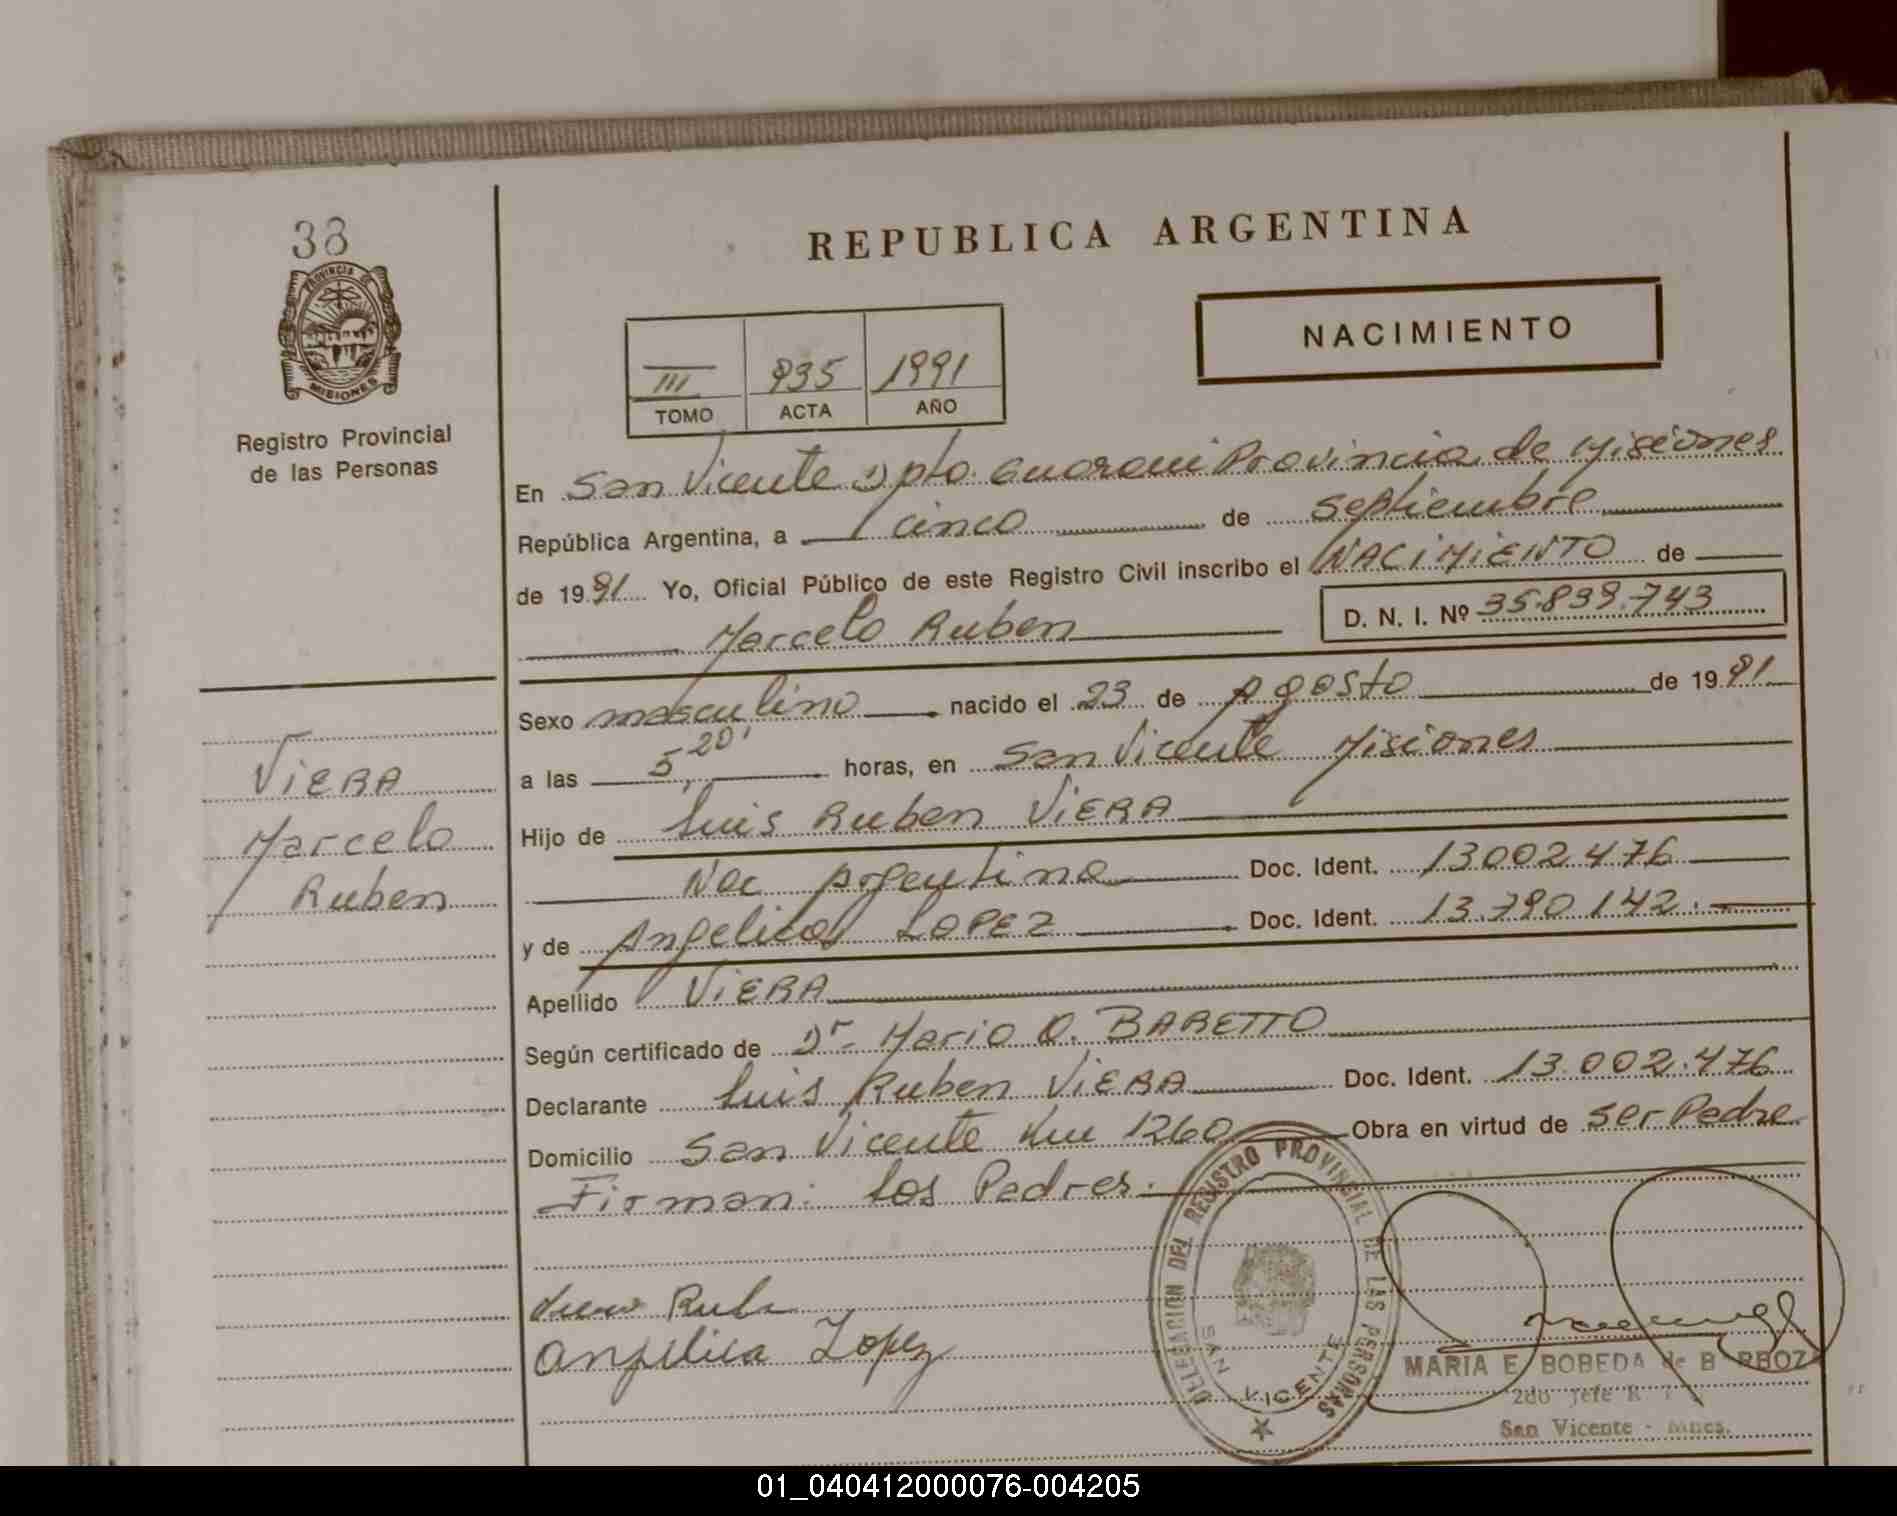 38
PROVINCIA DE
MISIONES
Registro Provincial
de las Personas
VIERA
Marcelo
Ruben
REPUBLICA ARGENTINA
NACIMIENTO
III 935 1991
TOMO ACTA AÑO
En San Vicente Dpto. Guarani Provincia de Misiones
República Argentina, a cinco de Septiembre
de 1991 Yo, Oficial Público de este Registro Civil inscribo el NACIMIENTO de
Marcelo Ruben D. N. I. Nº 35.839.743
Sexo masculino nacido el 23 de Agosto de 1991
a las 5,20' horas, en San Vicente Misiones
Hijo de Luis Ruben VIERA
Nac Argentina Doc. Ident. 13.002.476
y de Angelica LOPEZ Doc. Ident. 13.790.142.
Apellido VIERA
Según certificado de Dr. Mario O. BARETTO
Declarante Luis Ruben VIERA Doc. Ident. 13.002.476
Domicilio San Vicente km 1260 Obra en virtud de ser Padre
Firman: los Padres.
Angelica Lopez
DELEGACION DEL REGISTRO PROVINCIAL DE LAS PERSONAS
SAN VICENTE
MARIA E. BOBEDA de BARBOZA
2do Jefe R.
San Vicente - Mnes.
01_040412000076-004205